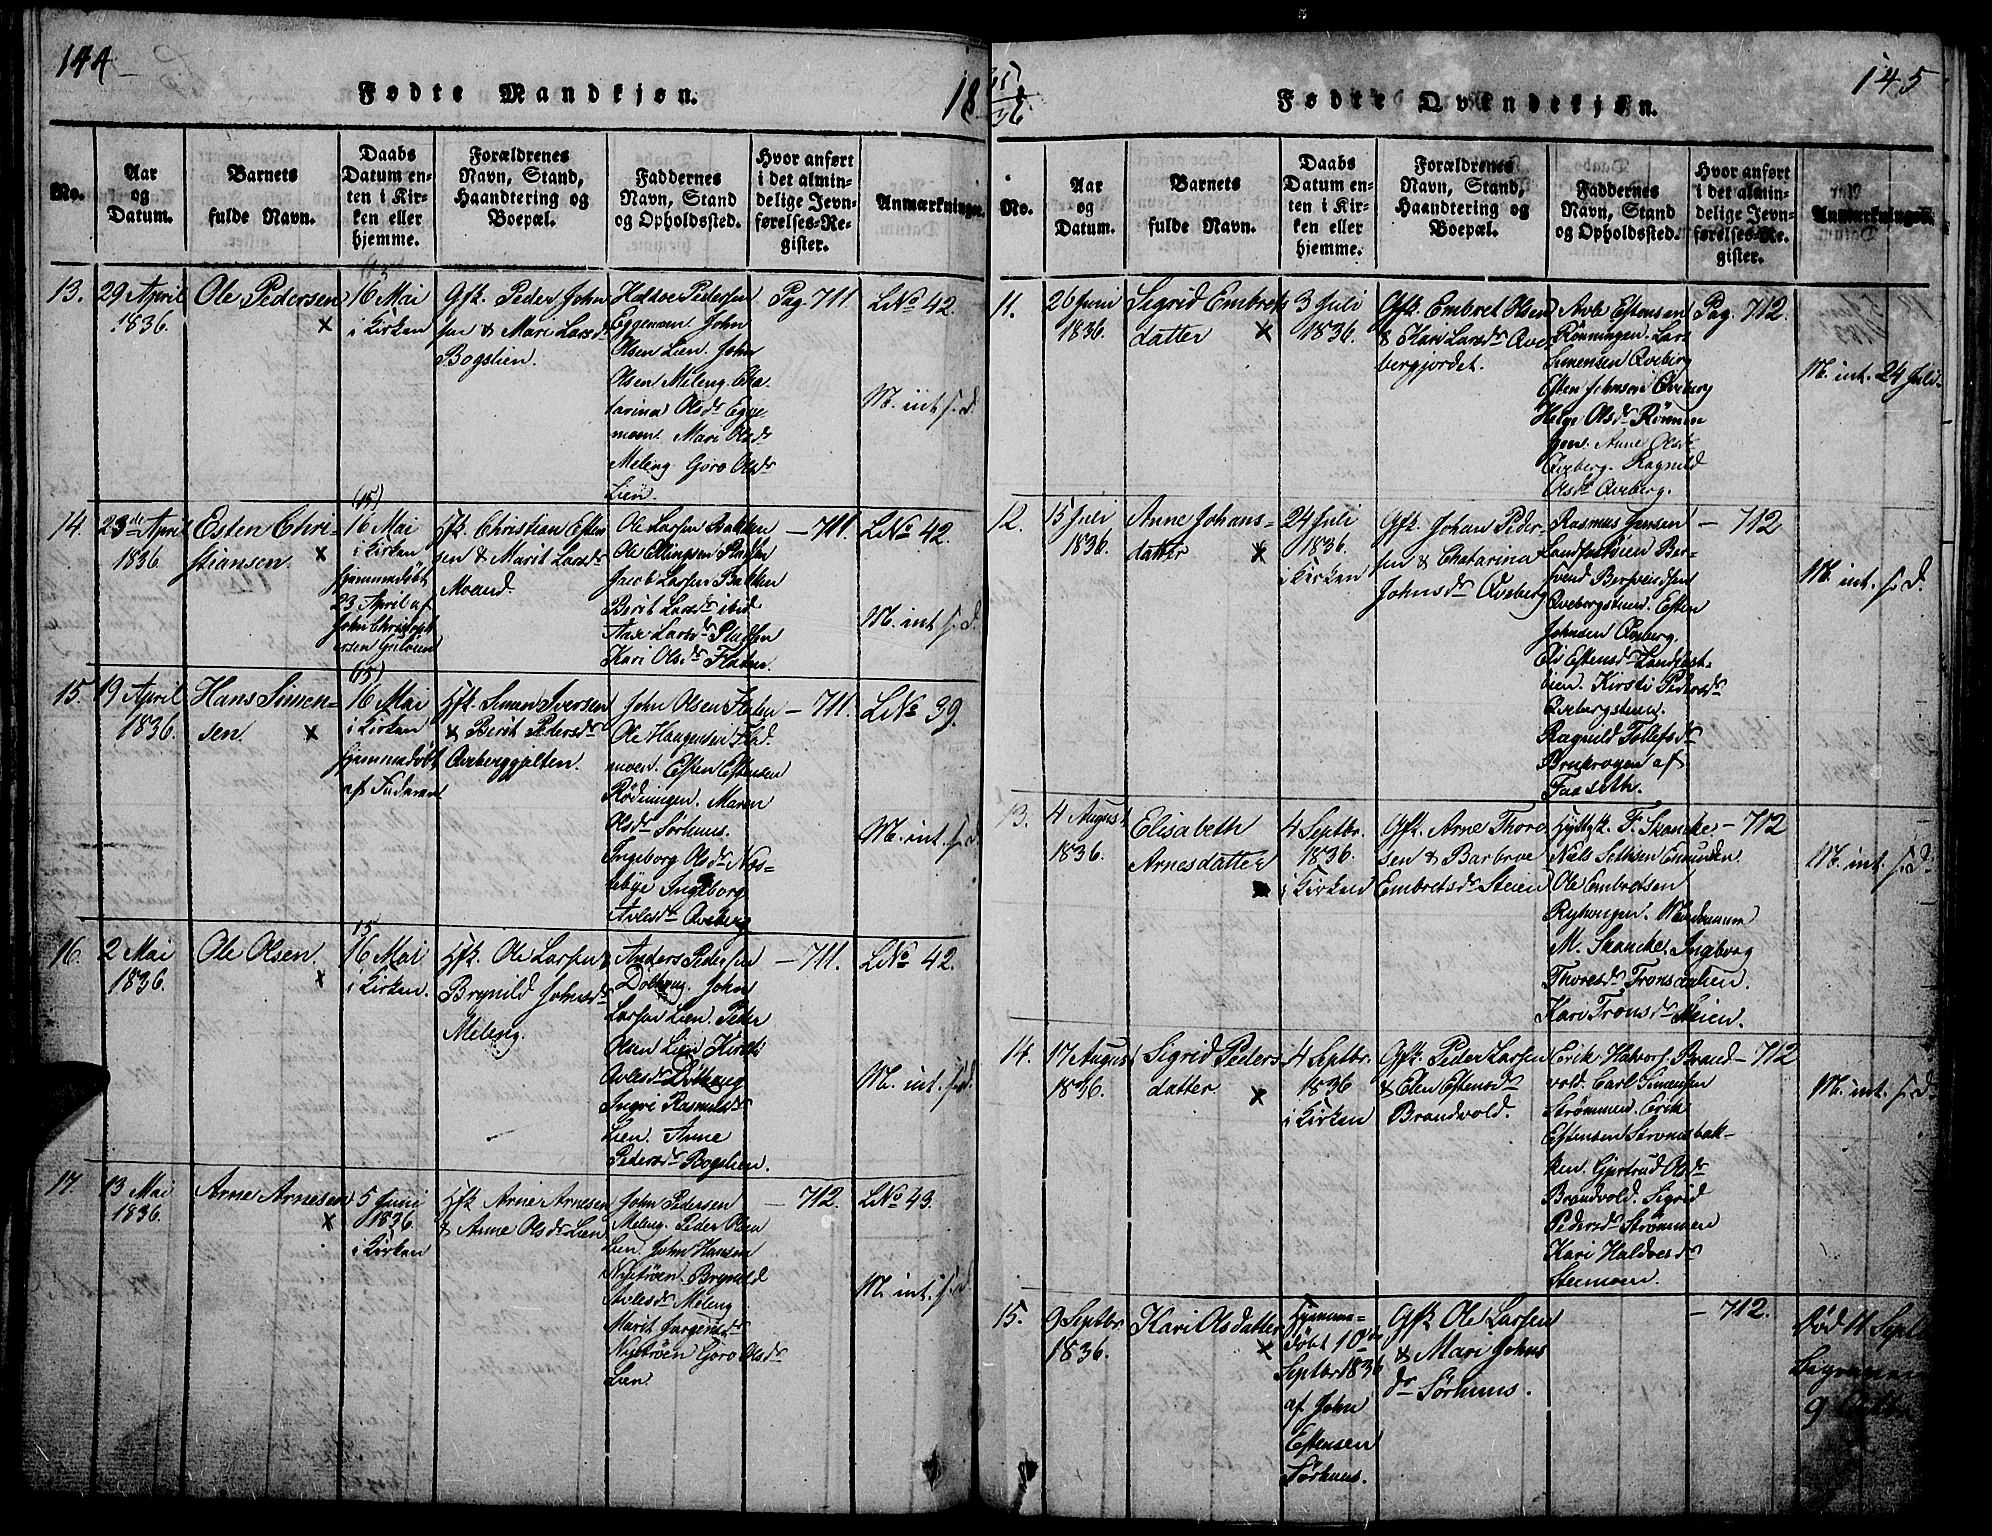 144
Fødte Mandkjøn.
18
No.
Aar
og
Datum.
Barnets
fulde Navn.
Daabs
Datum en-
ten i Kir-
ken eller
hjemme.
Forældrenes
Navn, Stand,
Haandtering og
Boepæl.
Faddernes
Navn, Stand
og Opholdssted.
Hvor anført
i det almin-
delige Jevn-
førelses-Re-
gister.
Anmærkninger.
13.
29 April
1836.
Ole Pedersen
16 Mai
i Kirken
Gfk. Peder John
sen & Mari Larsdr
Bogslien.
Haldoe Pedersen
Eggemoen. John
Olsen Lien. John
Olsen Meleng. Cha
tarina Olsdr Egge
moen. Mari Olsdr
Meleng. Goro Olsdr
Lien.
Pag. 711.
LNo 42.
M. int. s. d.
14.
23de April
1836
Esten Chri-
stiansen
(15)
16 Mai
i Kirken
hjemmedøbt
23 April af
John Christoph
ersen
Hfk. Christian Esten
sen & Marit Larsdr
Moand.
Ole Larsen Bakken
Ole Ellingsen Pladsen
Jacob Larsen Bakken
Berit Larsdr ibid.
Aase Larsdr Pladsen
Kari Olsdr Flaten.
— 711.
LNo 42.
M. int. s. d.
15.
19 April
1836.
Hans Simen-
sen.
(15)
16 Mai
i Kirken
hjemmedøbt
af Faderen
Hfk. Simen Iversen
& Berit Pedersdr
Qveberggjelten.
John Olsen Floten
Ole Haagensen Flad
moen. Esten Estensen
Rødningen. Maren
Olsdr Sørhuus.
Ingeborg Olsdr Næs-
tebye Ingeborg
Avlesdr Qveberg
— 711.
LNo 39.
M. int. s. d.
16.
2 Mai
1836.
Ole Olsen.
15
16 Mai
i Kirken.
Hfk. Ole Larsen &
Brynild Johnsdr
Meleng.
Anders Pedersen
Døthaug. John
Larsen Lien. Peder
Olsen Lien Kirsti
Avlesdr Døthaug
Ingri Rasmusdr
Lien. Anne
Pedersdr Bogslien.
— 711.
LNo 42.
M. int. s. d.
17.
13 Mai
1836.
Arne Arnesen
5 Juni
1836.
i Kirken
Hfk Arne Arnesen
& Anne Olsdr Lien
John Pedersen
Meleng. Peder Olsen
Lien. John Hansen
Nyetrøen. Brynild
Avlesdr Meleng
Marit Jørgensdr
Nyetrøen Goro Olsdr
Lien.
— 712.
LNo 43.
M. int. s. d.
145
35/36
Fødte Qvindekjøn.
No.
Aar
og
Datum.
Barnets
fulde Navn.
Daabs
Datum en-
ten i Kir-
ken eller
hjemme.
Forældrenes
Navn, Stand,
Haandtering og
Boepæl.
Faddernes
Navn, Stand
og Opholdssted.
Hvor anført
i det almin-
delige Jevn-
førelses-Re-
gister.
Anmærkninger.
11.
26 Juni
1836.
Sigrid Embrets
datter
3 Juli
1836.
Gfk. Embret Olsen
& Kari Larsdr Qve
bergjordet.
Avle Estensen
Rønningen. Lars
Simensen Qveberg
Esten Johnsen Qveberg
Helge Olsdr Rønnin
gen. Anne Olsdr
Qveberg. Ragnild
Olsdr Qveberg.
Pag. 712.
M. int. 24 Juli.
12.
15 Juli
1836.
Anne Johans-
datter
24 Juli
1836.
i Kirken
Gfk. Johan Peder
sen & Chatarina
Johnsdr Qveberg
Rasmus Jensen
Landfastøien Ber-
svend Bersvendsen
Qvebergstuen. Esten
Johnsen Qveberg.
Eli Estensdr Landfast-
øien. Kirsti Pedersdr
Qvebergstuen.
Ragnild Tollefsdr
Brukrogen af
Faaseth.
— 712
M. int. s. d.
13.
4 August
1836.
Elisabeth
Arnesdatter
4 Septbr.
1836.
i Kirken
Gfk. Arne Thore
sen & Barbroe
Embretsdr Steien
Hyttsk. F. Skancke
Niels Sethsen Enmoden
Ole Embretsen
Ryhaugen. Madammen
M. Skancke. Ingborg
Thoresdr Tronsdalien.
Kari Tronsdr Steien.
— 712
M. int. s. d.
14.
17 August
1836.
Sigrid Peders
datter
4 Septbr.
1836
i Kirken
Gfk. Peder Larsen
& Elen Estensdr
Brandvold.
Erik Halvors. Brand
vold. Carl Simensen
Strømmen. Erik
Estensen Strømsbak-
ken. Gjertrud Olsdr
Brandvold. Sigrid
Pedersdr Strømmen
Kari Haldoesdr
Steemoen.
— 712
M. int. s. d.
15.
9 Septbr.
1836.
Kari Olsdatter
Hjemme-
døbt 10de
Septbr 1836
af John
Estensen
Sørhuus.
Gfk Ole Larsen
& Mari Johns
dr Sørhuus.
— 712.
Død 11 Septb
Begraven
9 Octbr